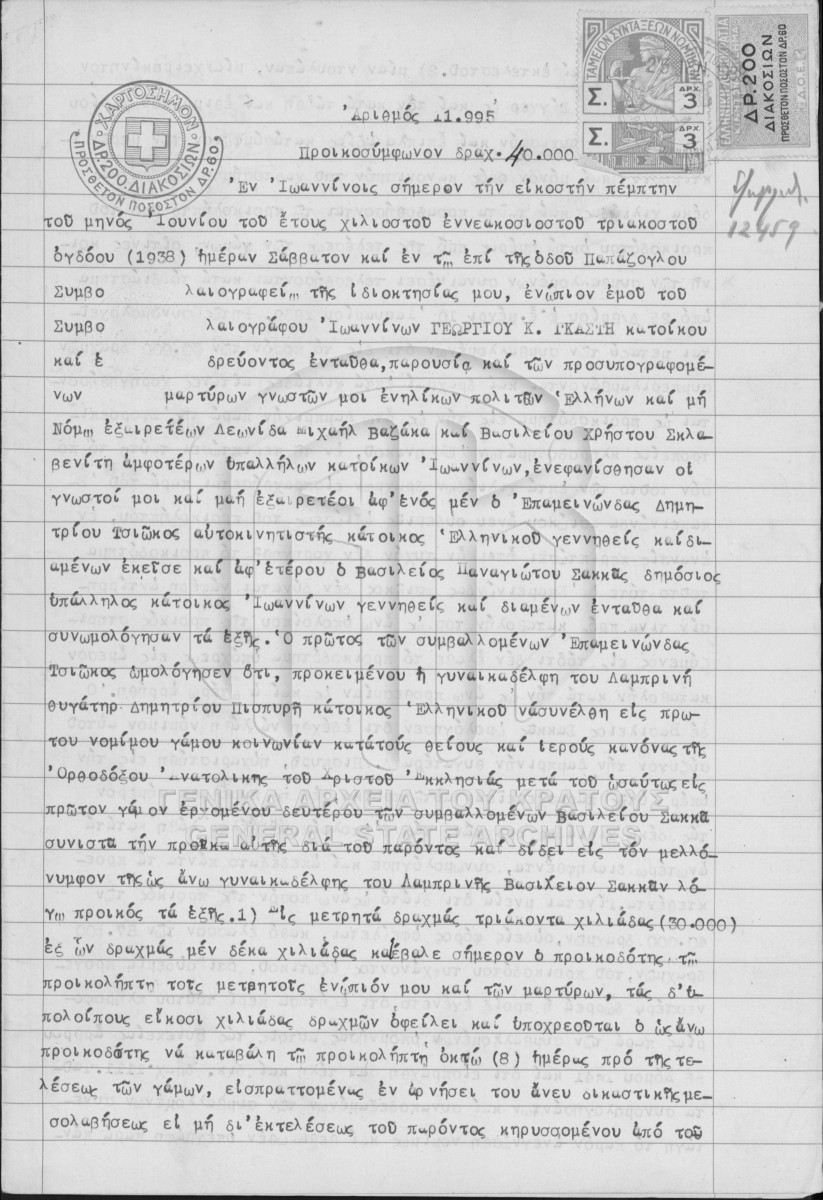 ΤΑΜΕΙΟΝ ΣΥΝΤΑΞΕΩΝ ΝΟΜΙΚΩΝ
Σ. ΔΡΧ 3
Σ. ΔΡΧ 3
ΔΡ.200
ΔΙΑΚΟΣΙΩΝ
ΠΡΟΣΘΕΤΟΝ ΠΟΣΟΣΤΟΝ ΔΡ.60
ΧΑΡΤΟΣΗΜΟΝ
ΔΡ.200.ΔΙΑΚΟΣΙΩΝ
ΠΡΟΣΘΕΤΟΝ ΠΟΣΟΣΤΟΝ ΔΡ.60
12459
Ἀριθμός 11.995
Προικοσύμφωνον δραχ.40.000
Ἐν Ἰωαννίνοις σήμερον τήν εἰκοστήν πέμπτην
τοῦ μηνός Ἰουνίου τοῦ ἔτους χιλιοστοῦ ἐννεακοσιοστοῦ τριακοστοῦ
ὀγδόου (1938) ἡμέραν Σάββατον καί ἐν τῷ ἐπί τῆς ὁδοῦ Παπάζογλου
Συμβο λαιογραφείῳ τῆς ἰδιοκτησίας μου, ἐνώπιον ἐμοῦ τοῦ
Συμβο λαιογράφου Ἰωαννίνων ΓΕΩΡΓΙΟΥ Κ. ΓΚΑΣΤΗ κατοίκου
καί ἑ δρεύοντος ἐνταῦθα, παρουσίᾳ καί τῶν προσυπογραφομέ-
νων μαρτύρων γνωστῶν μοι ἐνηλίκων πολιτῶν Ἑλλήνων καί μή
Νόμῳ ἐξαιρετέων Λεωνίδα Μιχαήλ Βαζάκα καί Βασιλείου Χρήστου Σκλα-
βενίτη ἀμφοτέρων ὑπαλλήλων κατοίκων Ἰωαννίνων, ἐνεφανίσθησαν οἱ
γνωστοί μοι καί μαή ἐξαιρετέοι ἀφ'ἑνός μέν ὁ Ἐπαμεινώνδας Δημη-
τρίου Τσιῶκος αὐτοκινητιστής κάτοικος Ἑλληνικοῦ γεννηθείς καίδι-
αμένων ἐκεῖσε καί ἀφ'ἑτέρου ὁ Βασιλείος Παναγιώτου Σακκᾶς δημόσιος
ὑπάλληλος κάτοικος Ἰωαννίνων γεννηθείς καί διαμένων ἐνταῦθα καί
συνωμολόγησαν τά ἑξῆς. Ὁ πρῶτος τῶν συμβαλλομένων Ἐπαμεινώνδας
Τσιῶκος ὡμολόγησεν ὅτι, προκειμένου ἡ γυναικαδέλφη του Λαμπρινή
θυγάτηρ Δημητρίου Πισπυρῆ κάτοικος Ἑλληνικοῦ νάσυνέλθη εἰς πρω-
του νομίμου γάμου κοινωνίαν κατάτούς θείους καί ἱερούς κανόνας τῆς
Ὀρθοδόξου Ἀνατολικης τοῦ Χριστοῦ Ἐκκλησιάς μετά τοῦ ὡσαύτως εἰς
πρῶτον γάμον ἐρχομένου δευτέρου τῶν συμβαλλομένων Βασιλείου Σακκᾶ
συνιστᾶ τήν προῖκα αὐτῆς διά τοῦ παρόντος καί δίδει εἰς τόν μελλό-
νυμφον τῆς ὡς ἄνω γυναικαδέλφης του Λαμπρινῆς Βασιλειον Σακκᾶν λό-
γῳ προικός τά ἑξῆς.1) Εἰς μετρητά δραχμάς τριάκοντα χιλιάδας (30.000)
ἐξ ὧν δραχμάς μέν δέκα χιλιάδας κατέβαλε σήμερον ὁ προικοδότης τῷ
προικολήπτῃ τοῖς μετρητοῖς ἐνώπιόν μου καί τῶν μαρτύρων, τάς δ'ὑ-
πολοίπους εἴκοσι χιλιάδας δραχμῶν ὀφείλει καί ὑποχρεοῦται ὁ ὡς ἄνω
προικοδότης νά καταβάλη τῷ προικολήπτῃ ὀκτώ (8) ἡμέρας πρό τῆς τε-
λέσεως τῶν γάμων, εἰσπραττομένας ἐν ἀρνήσει του ἄνευ δικαστικῆς με-
σολαβήσεως εἰ μή δι'ἐκτελέσεως τοῦ παρόντος κηρυσσομένου ἀπό τοῦ
ΓΕΝΙΚΑ ΑΡΧΕΙΑ ΤΟΥ ΚΡΑΤΟΥΣ
GENERAL STATE ARCHIVES